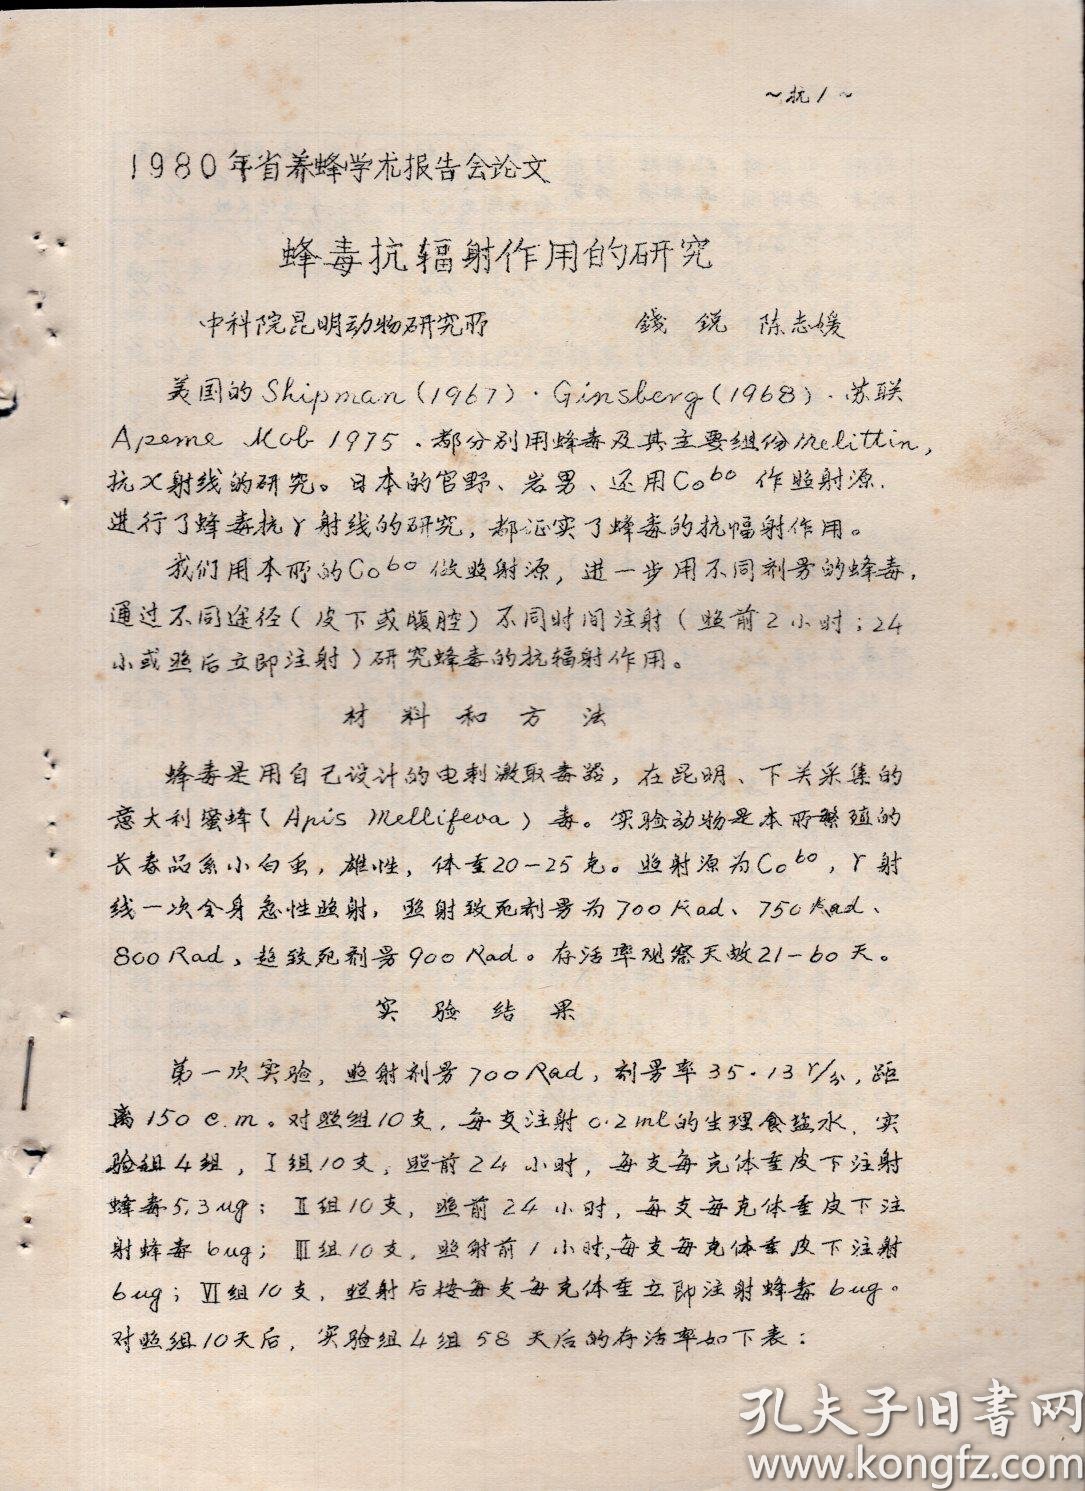 ~抗1~
1980年省养蜂学术报告会论文
蜂毒抗辐射作用的研究
中科院昆明动物研究所 錢 锐 陈志媛
美国的Shipman(1967)·Ginsberg(1968)·苏联
Apeme Mob 1975、都分别用蜂毒及其主要组份melittin,
抗X射线的研究。日本的官野、岩男、还用Co⁶⁰ 作照射源.
进行了蜂毒抗γ射线的研究,都证实了蜂毒的抗幅射作用。
我们用本所的Co⁶⁰ 做照射源,进一步用不同剂量的蜂毒,
通过不同途径(皮下或腹腔)不同时间注射(照前2小时;24
小或照后立即注射)研究蜂毒的抗辐射作用。
材料和方法
蜂毒是用自己设计的电刺激取毒器,在昆明、下关采集的
意大利蜜蜂(Apis Mellifeva)毒。实验动物是本所繁殖的
长春品系小白鼠,雄性,体重20-25克。照射源为Co⁶⁰,γ射
线一次全身急性照射,照射致死剂量为700Rad、750Rad、
800Rad、超致死剂量900Rad。存活率观察天数21-60天。
实验结果
第一次实验,照射剂量700Rad,剂量率35·13γ/分,距
离150 c.m。对照组10支,每支注射0.2ml的生理食盐水,实
验组4组,Ⅰ组10支,照前24小时,每支每克体重皮下注射
蜂毒5.3ug;Ⅱ组10支,照前24小时,每支每克体重皮下注
射蜂毒6ug;Ⅲ组10支,照射前1小时,每支每克体重皮下注射
6ug;Ⅵ组10支,照射后按每支每克体重立即注射蜂毒6ug。
对照组10天后,实验组4组58天后的存活率如下表:
孔夫子旧書网
www.kongfz.com